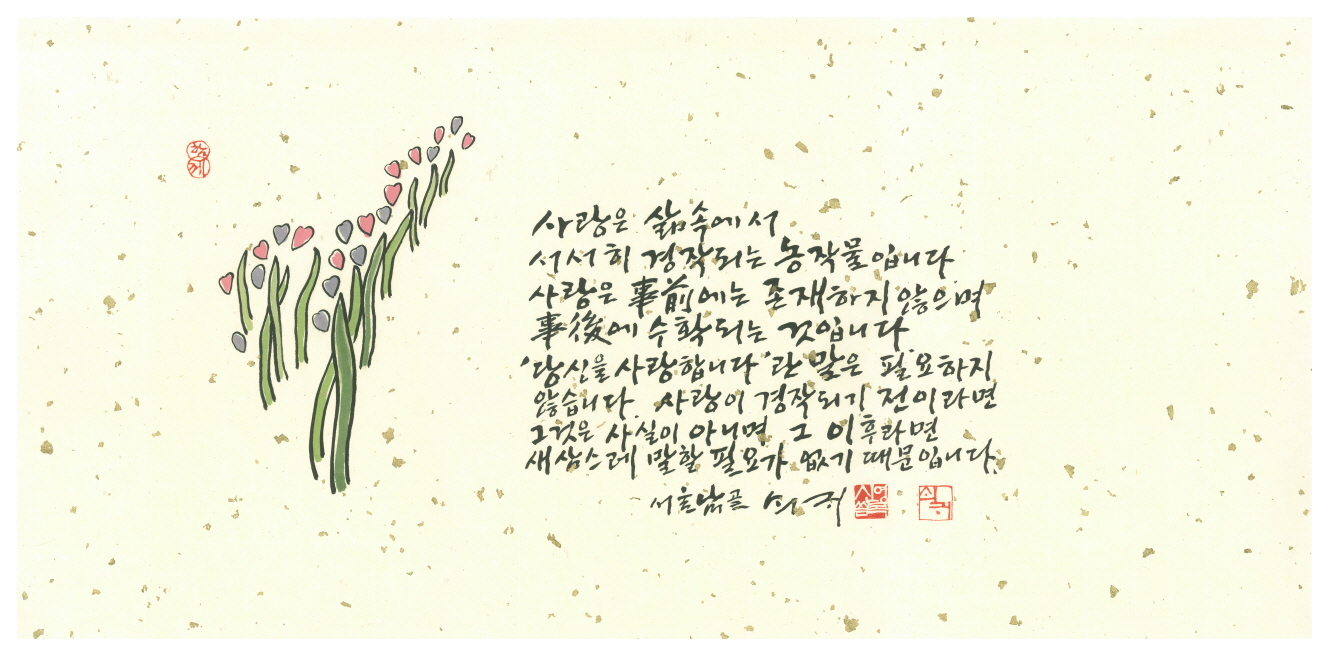 사랑은 삶속에서
서서히 경작되는 농작물입니다
사랑은 事前에는 존재하지않으며
事後에 수확되는 것입니다
'당신을 사랑합니다'란 말은 필요하지
않습니다. 사랑이 경작되기 전이라면
그것은 사실이 아니며 그 이후라면
새삼스레 말할 필요가 없기 때문입니다.
서울남골